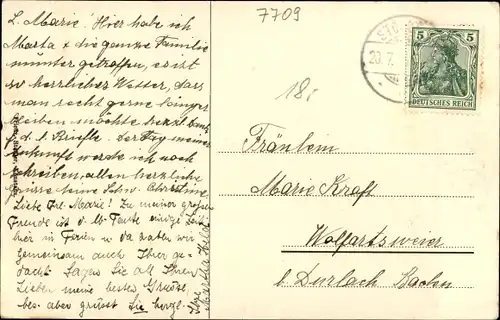 7709
L. Marie! Hier habe ich
Marta & die ganze Familie
munter getroffen, es ist
so herrliches Wetter, dass
man recht gerne länger
bleiben möchte herzl. Dank
f. d. l. Briefle. Der Tag meiner
Ankunft werde ich noch
schreiben, allen herzliche
Grüsse Deine Schw. Christine
Liebe Frl. Marie! Zu meiner grossen
Freude ist d. lb. Tante einige Zeit
hier in Ferien u. da haben wir
gemeinsam auch Ihrer ge-
dacht. Sagen Sie all Ihren
Lieben meine besten Grüsse,
bes. aber grüsst Sie herzl.
Ihre Martha
18.
5 5
DEUTSCHES REICH
20.7.
Fräulein
Marie Kraft
Wolfartsweier
b. Durlach Baden